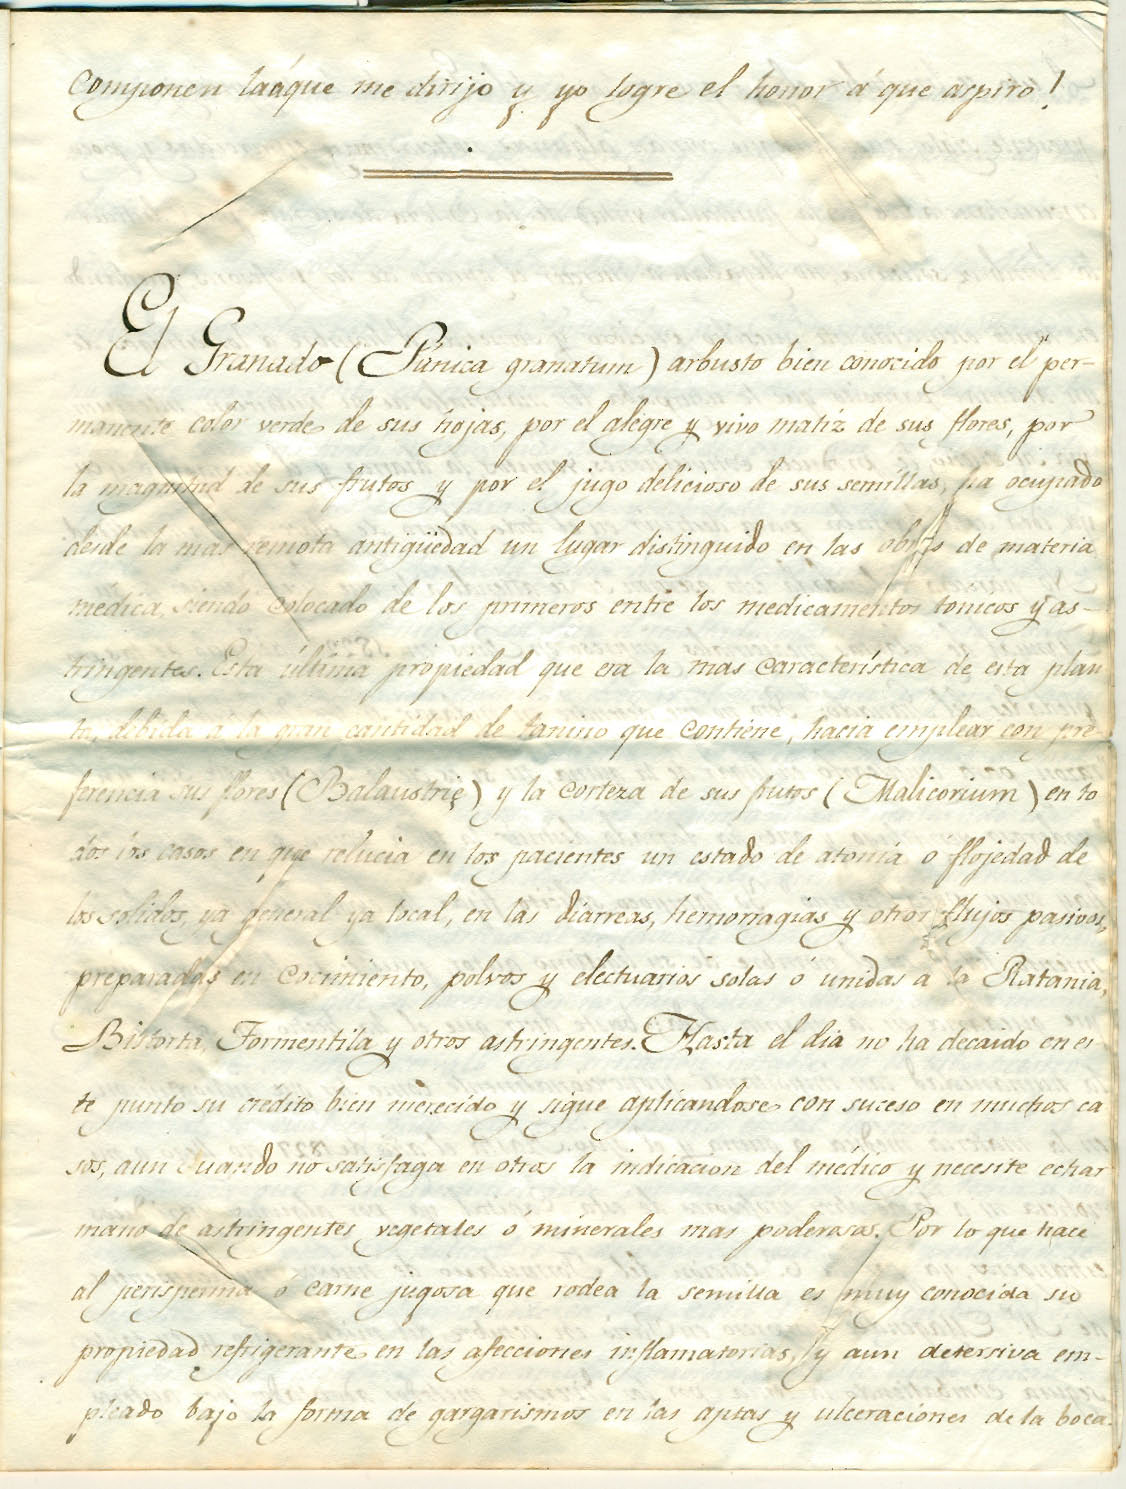 componen la áque me dirijo y yo logre el honor á que aspiro!
El Granado (Púnica granatum) arbusto bien conocido por el per-
manente color verde de sus hojas, por el alegre y vivo matiz de sus flores, por
la magnitud de sus frutos y por el jugo delicioso de sus semillas, ha ocupado
desde la mas remota antigüedad un lugar distinguido en las obras de materia
médica, siendo colocado de los primeros entre los medicamentos tonicos y as-
tringentes. Esta última propiedad que era la mas característica de esta plan
ta, debida á la gran cantidad de tanino que contiene, hacia emplear con pre-
ferencia sus flores (Balaustrię) y la corteza de sus frutos (Malicorium) en to
dos los casos en que relucia en los pacientes un estado de atonía ó flojedad de
los solidos, ya general ya local, en las diarreas, hemorragias y otros flujos pasivos,
preparados en cocimiento, polvos y electuarios solas ó unidas a la Ratania,
Bistorta, Formentila y otros astringentes. Hasta el dia no ha decaido en es
te punto su crédito bien merecido y sigue aplicandose con suceso en muchos ca
sos, aun cuando no satisfaga en otros la indicacion del médico y necesite echar
mano de astringentes vegetales ó minerales mas poderosos. Por lo que hace
al perisperma ó carne jugosa que rodea la semilla es muy conocida su
propiedad refrigerante en las afecciones inflamatorias, y aun detersiva em-
pleado bajo la forma de gargarismos en las aptas y ulceraciones de la boca.